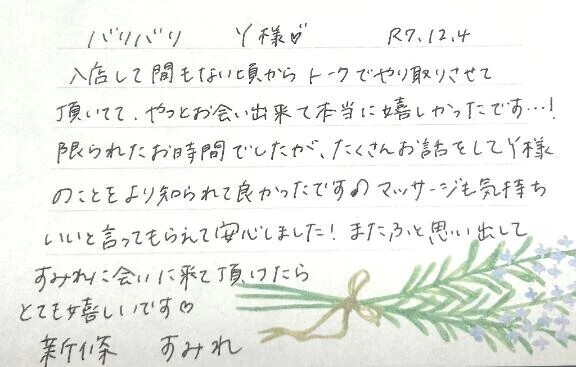 バリバリ　Y様♡　R7.12.4
入店して間もない頃からトークでやり取りさせて
頂いてて、やっとお会い出来て本当に嬉しかったです…!
限られたお時間でしたが、たくさんお話をしてY様
のことをより知られて良かったです♪マッサージも気持ち
いいと言ってもらえて安心しました!またふと思い出して
すみれに会いに来て頂けたら
とても嬉しいです♡
新條　すみれ